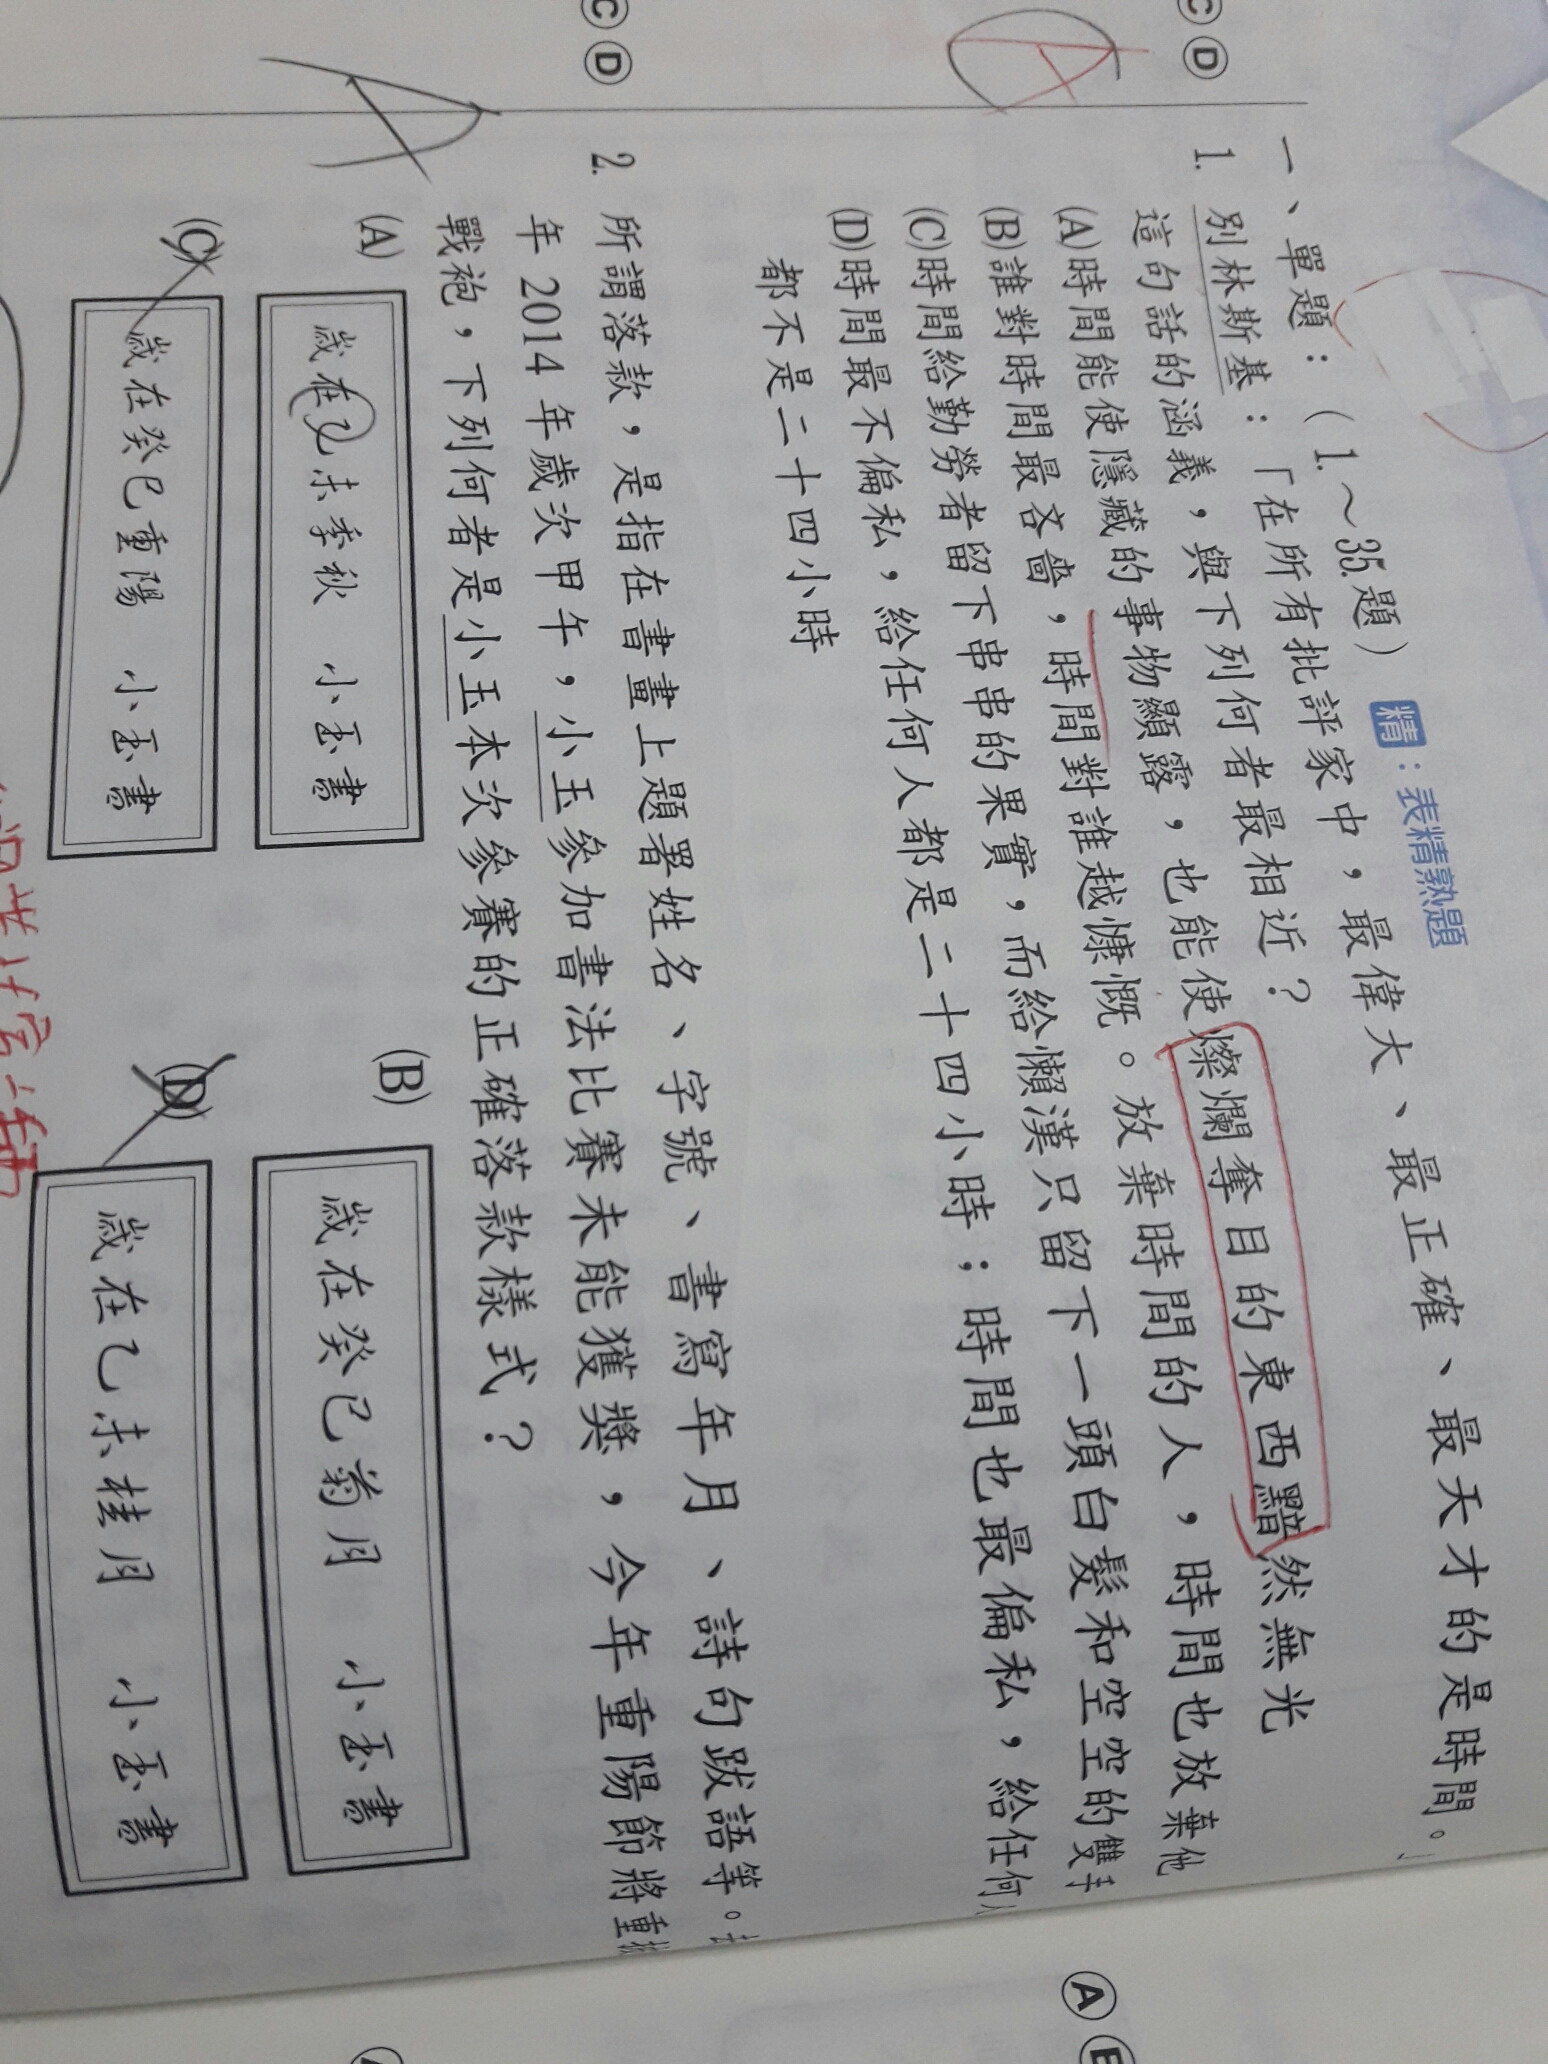 精：表精熟題
一、單題：（1.～35.題）
1. 別林斯基：「在所有批評家中，最偉大、最正確、最天才的是時間。」
這句話的涵義，與下列何者最相近？
(A)時間能使隱藏的事物顯露，也能使燦爛奪目的東西黯然無光
(B)誰對時間最吝嗇，時間對誰越慷慨。放棄時間的人，時間也放棄他
(C)時間給勤勞者留下串串的果實，而給懶漢只留下一頭白髮和空空的雙手
(D)時間最不偏私，給任何人都是二十四小時；時間也最偏私，給任何人
都不是二十四小時
2. 所謂落款，是指在書畫上題署姓名、字號、書寫年月、詩句跋語等。去
年 2014 年歲次甲午，小玉參加書法比賽未能獲獎，今年重陽節將重披
戰袍，下列何者是小玉本次參賽的正確落款樣式？
(A) 歲在乙未季秋 小玉書
(B) 歲在癸巳菊月 小玉書
(C) 歲在癸巳重陽 小玉書
(D) 歲在乙未桂月 小玉書
C D
C D
A
A
A